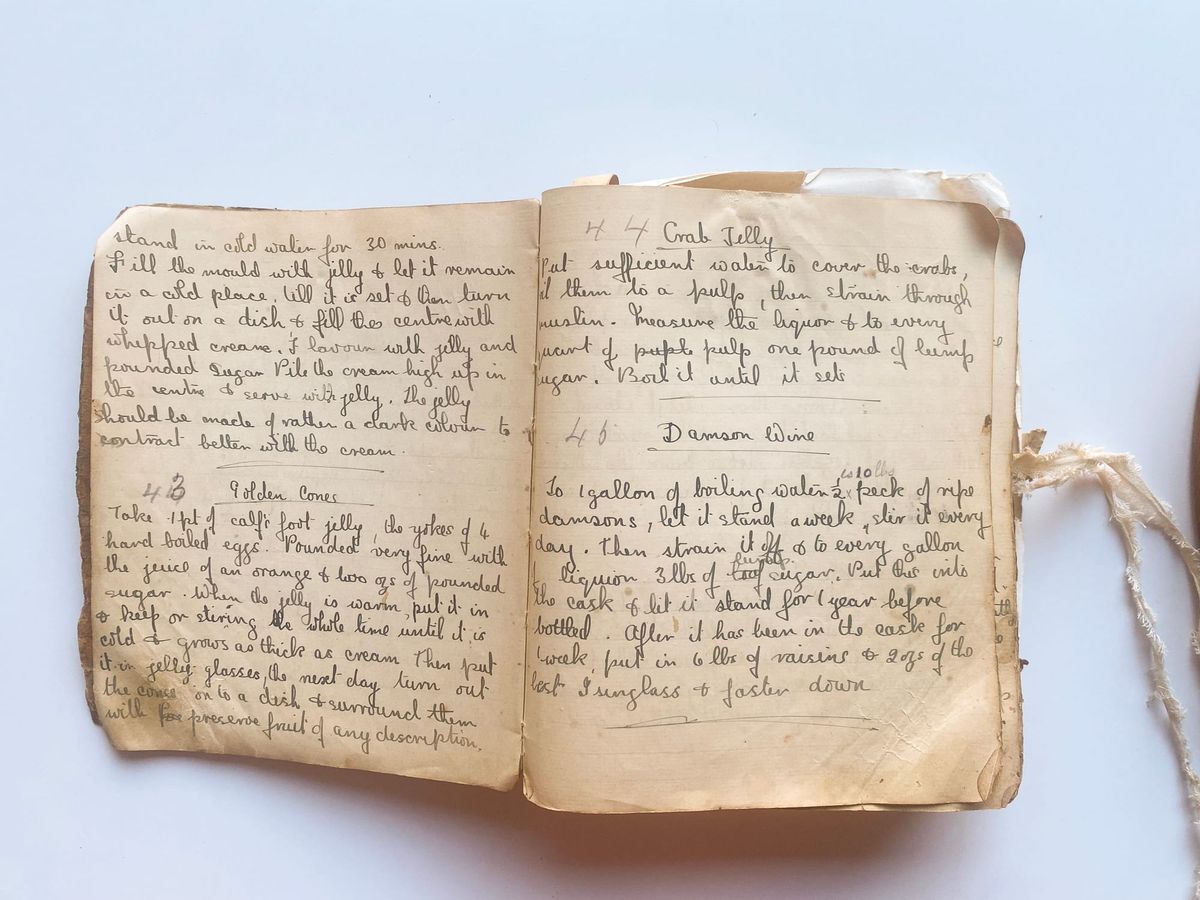 stand in cold water for 30 mins.
Fill the mould with jelly & let it remain
in a cold place, till it is set & then turn
it out on a dish & fill the centre with
whipped cream. Flavour with jelly and
pounded sugar Pile the cream high up in
the centre & serve with jelly. The jelly
should be made of rather a dark colour to
contract better with the cream.
43 Golden Cones
Take 1pt of calf's foot jelly, the yokes of 4
hard boiled eggs. Pounded very fine with
the jeuice of an orange & two ozs of pounded
sugar. When the jelly is warm, put it in
& keep or stiring the whole time until it is
cold & grows as thick as cream Then put
it in jelly glasses, the next day turn out
the cones on to a dish & surround them
with preserve fruit of any description.
44 Crab Jelly
Put sufficient water to cover the crabs,
them to a pulp, then strain through
muslin. Measure the liquor & to every
of pulp one pound of lump
sugar. Boil it until it sets
Damson Wine
10 lbs
To 1 gallon of boiling water ½ peck of ripe
damsons, let it stand a week, stir it every
day. Then strain it off & to every gallon
liquior 3lbs of sugar. Put this into
the cask & let it stand for 1 year before
bottled. After it has been in the cask for
1 week, put in 6 lbs of raisins & 2 ozs of the
best Isinglass & faster down